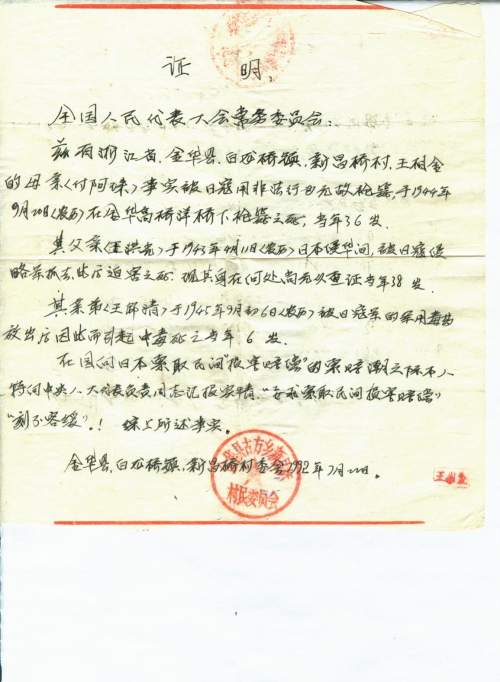 证 明
全国人民代表大会常务委员会
兹有浙江省、金华县、白龙桥镇、新昌桥村、王相金
的母亲(付阿珠)事实被日寇用非法行 无故枪毙,于1944年
9月20日(农历)在金华高桥洋桥下枪毙之死,当年36岁.
其父亲(王洪 )于1943年4月11日(农历)日本侵华间,被日寇侵
略 抓去,此后迫害之死. 现其身在何处尚无从查证当年38岁.
其 弟(王 清)于1945年9月初6日(农历)被日寇军的 用毒
放出后因此而引起中毒死之当年 6 岁.
在国向日本索取民间"损害赔偿"的索赔潮之际本人
特向中央人大代表负责同志汇报实情.“要求索取民间损害赔偿”
“刻不容缓”.! 综上所述事实.
金华县、白龙桥镇、新昌桥村委会1992年7月 日.
古方乡新昌桥
村民委员会